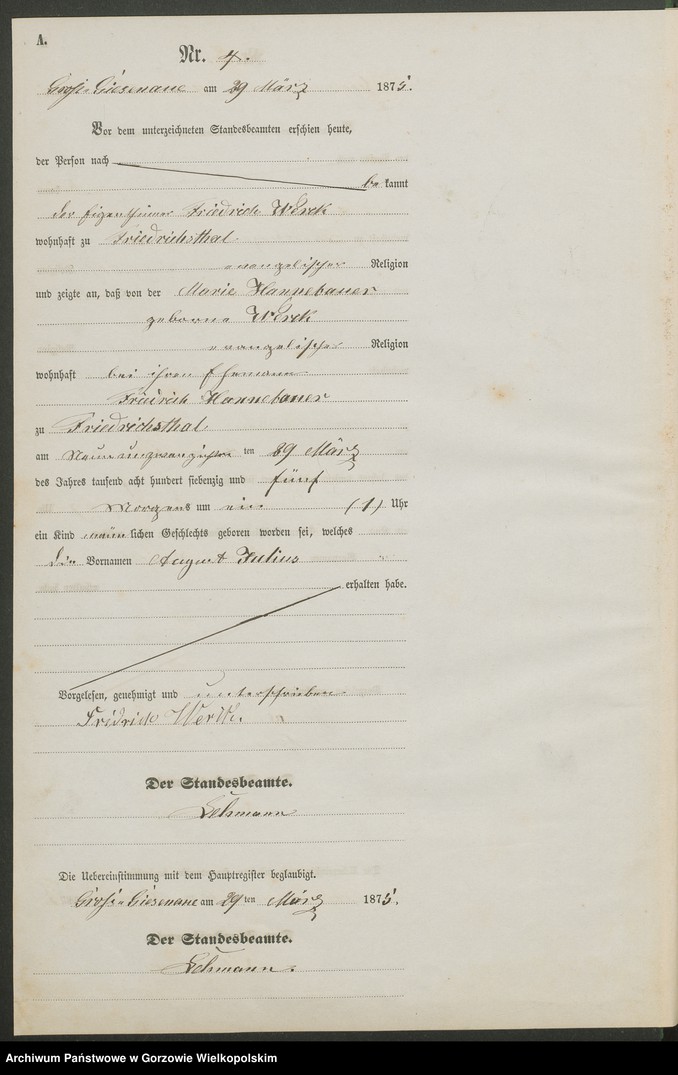 A.
Nr. 4.
Groß-Giesenaue am 29 März 1875.
Vor dem unterzeichneten Standesbeamten erschien heute,
der Person nach
be kannt
der Eigenthümer Friedrich Werk
wohnhaft zu Friedrichsthal
evangelischer Religion
und zeigte an, daß von der Marie Hannebauer
geborne Werk
evangelischer Religion
wohnhaft bei ihren Ehemann
Friedrich Hannebauer
zu Friedrichsthal
am Neunundzwanzigsten ten 29 März
des Jahres tausend acht hundert siebenzig und fünf
Morgens um ein (1) Uhr
ein Kind männ lichen Geschlechts geboren worden sei, welches
die Vornamen August Julius
erhalten habe.
Vorgelesen, genehmigt und unterschrieben
Fridrich Werth.
Der Standesbeamte.
Lehmann
Die Uebereinstimmung mit dem Hauptregister beglaubigt.
Groß-Giesenaue am 29 ten März 1875.
Der Standesbeamte.
Lehmann.
Archiwum Państwowe w Gorzowie Wielkopolskim